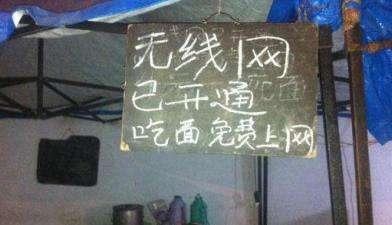 无线网
已开通
吃面免费上网